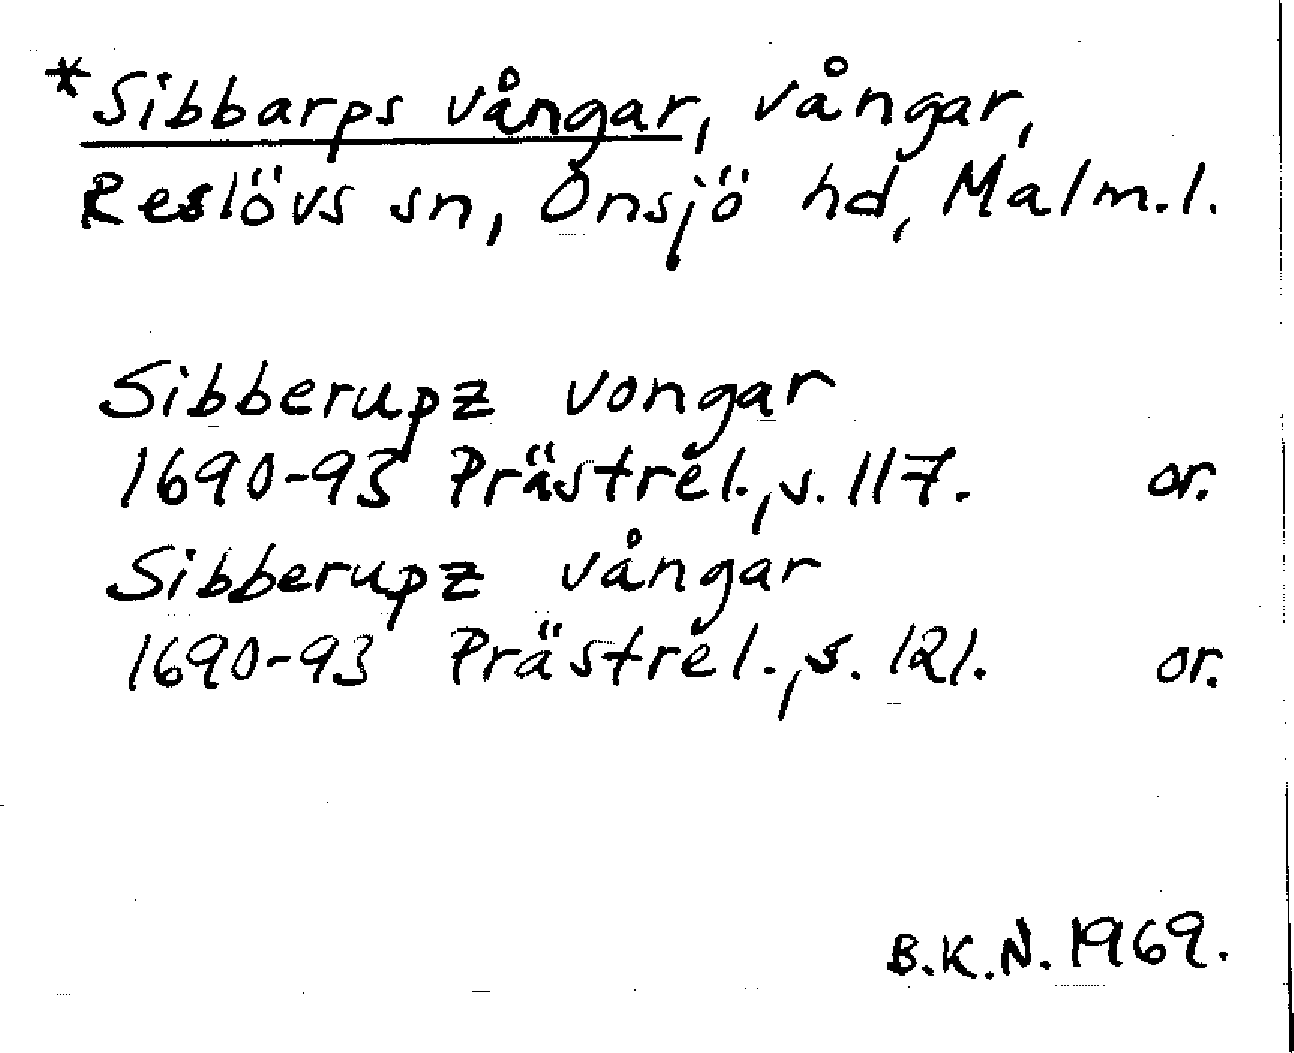 *Sibbarps vångar, vångar,
Reslövs sn, Onsjö hd, Malm.l.
Sibberupz vongar
1690-93 Prästrel., s. 117. or.
Sibberupz vångar
1690-93 Prästrel., s. 121. or.
B.K.N. 1969.